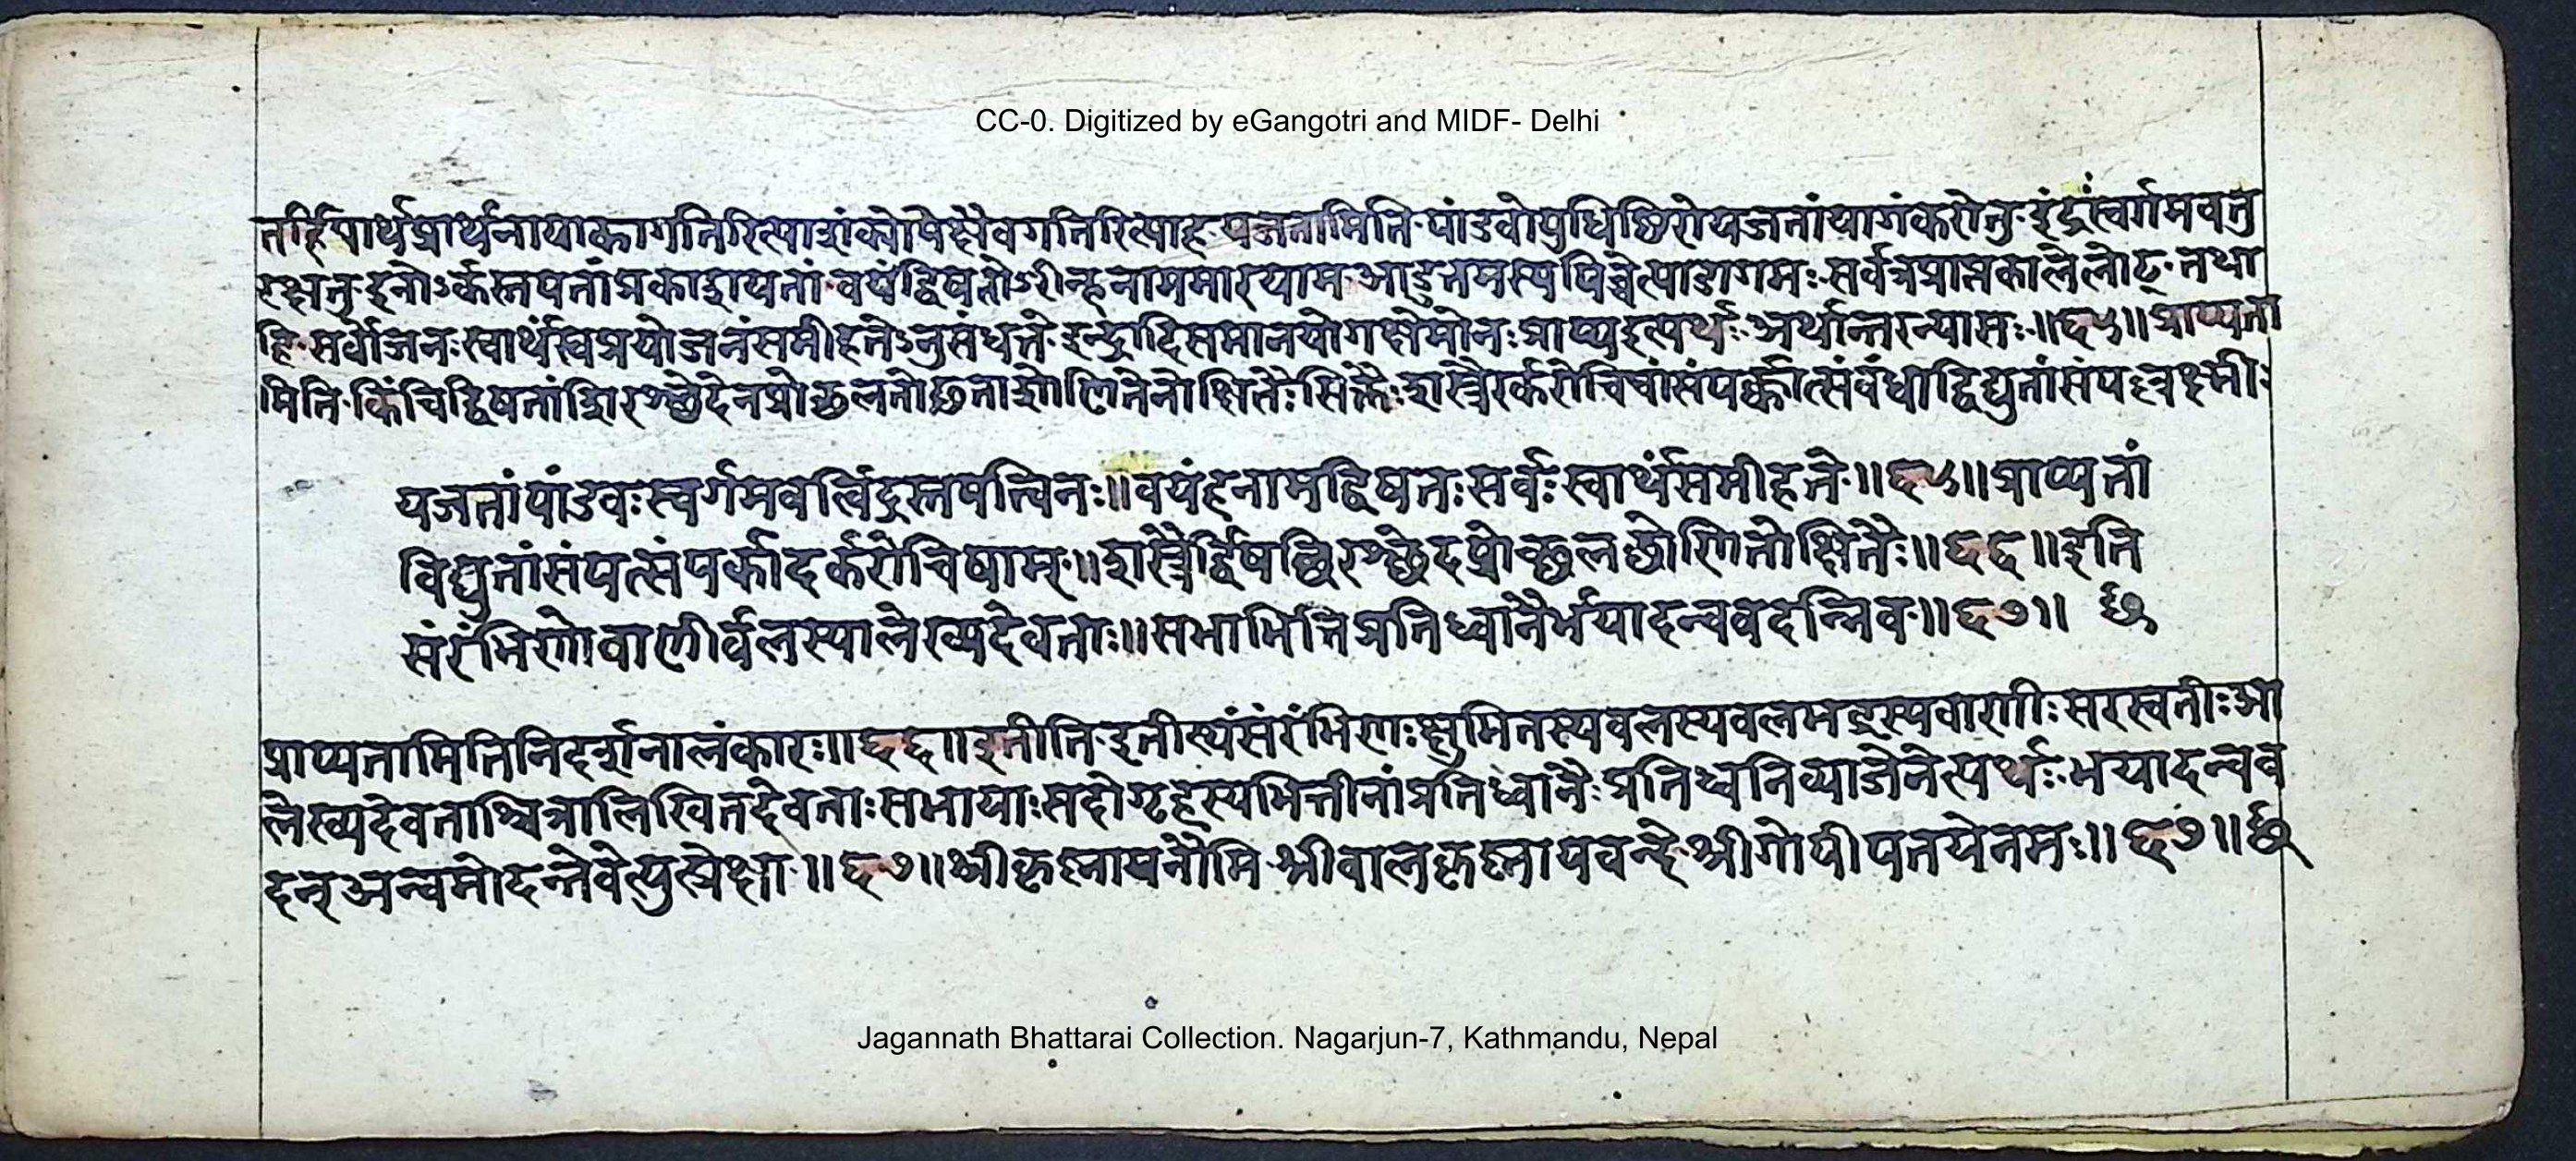 CC-0. Digitized by eGangotri and MIDF- Delhi
तर्हिपार्थप्रार्थनायाकागतिरित्याशंक्योपेक्षैवगतिरित्याह यजतामिति पांडवोयुधिष्ठिरोयजतांयागंकरोतु इंद्रःस्वर्गमवतु
रक्षतु इनोऽर्कस्तपतांप्रकाशयतां वयंद्विषतोऽरीन्हनाममारयाम आडुत्तमस्यपिच्चेत्याडागमः सर्वत्रप्राप्तकालेलोट् तथा
हि सर्वोजनःस्वार्थंस्वप्रयोजनंसमीहतेऽनुसंधत्ते इन्द्रादिसमानयोगक्षेमोनःप्राप्यइत्यर्थः अर्थान्तरन्यासः॥६५॥प्राप्यता
मिति किंचिद्विषतांशिरश्छेदेनप्रोच्छलतोद्गताशोणितेनोक्षितैःसिक्तैःशस्त्रैरर्करोचिषांसंपर्कात्संबंधाद्विद्युतांसंपल्लक्ष्मीः
यजतांपांडवःस्वर्गमवत्विंद्रस्तपत्विनः॥वयंहनामद्विषतःसर्वःस्वार्थंसमीहते॥६५॥प्राप्यतां
विद्युतांसंपत्संपर्कादर्करोचिषाम्॥शस्त्रैर्द्विषच्छिरश्छेदप्रोच्छलच्छोणितोक्षितैः॥६६॥इति
संरंभिणोवाणीर्बलस्यालेख्यदेवताः॥सभाभित्तिप्रतिध्वानैर्भयादन्ववदन्निव॥६७॥ छ
प्राप्यतामितिनिदर्शनालंकारः॥६६॥इतीति इतीत्थंसंरंभिणःक्षुभितस्यबलस्यबलभद्रस्यवाणीःसरस्वतीःआ
लेख्यदेवताश्चित्रालिखितदेवताःसभायाःसदोगृहस्यभित्तीनांप्रतिध्वानैःप्रतिध्वनिव्याजेनेत्यर्थः भयादन्वव
दन्अन्वमोदन्तेवेत्युत्प्रेक्षा॥६७॥श्रीकृष्णायनौमि श्रीबालकृष्णायवन्दे श्रीगोपीपतयेनमः॥६७॥छ
Jagannath Bhattarai Collection. Nagarjun-7, Kathmandu, Nepal